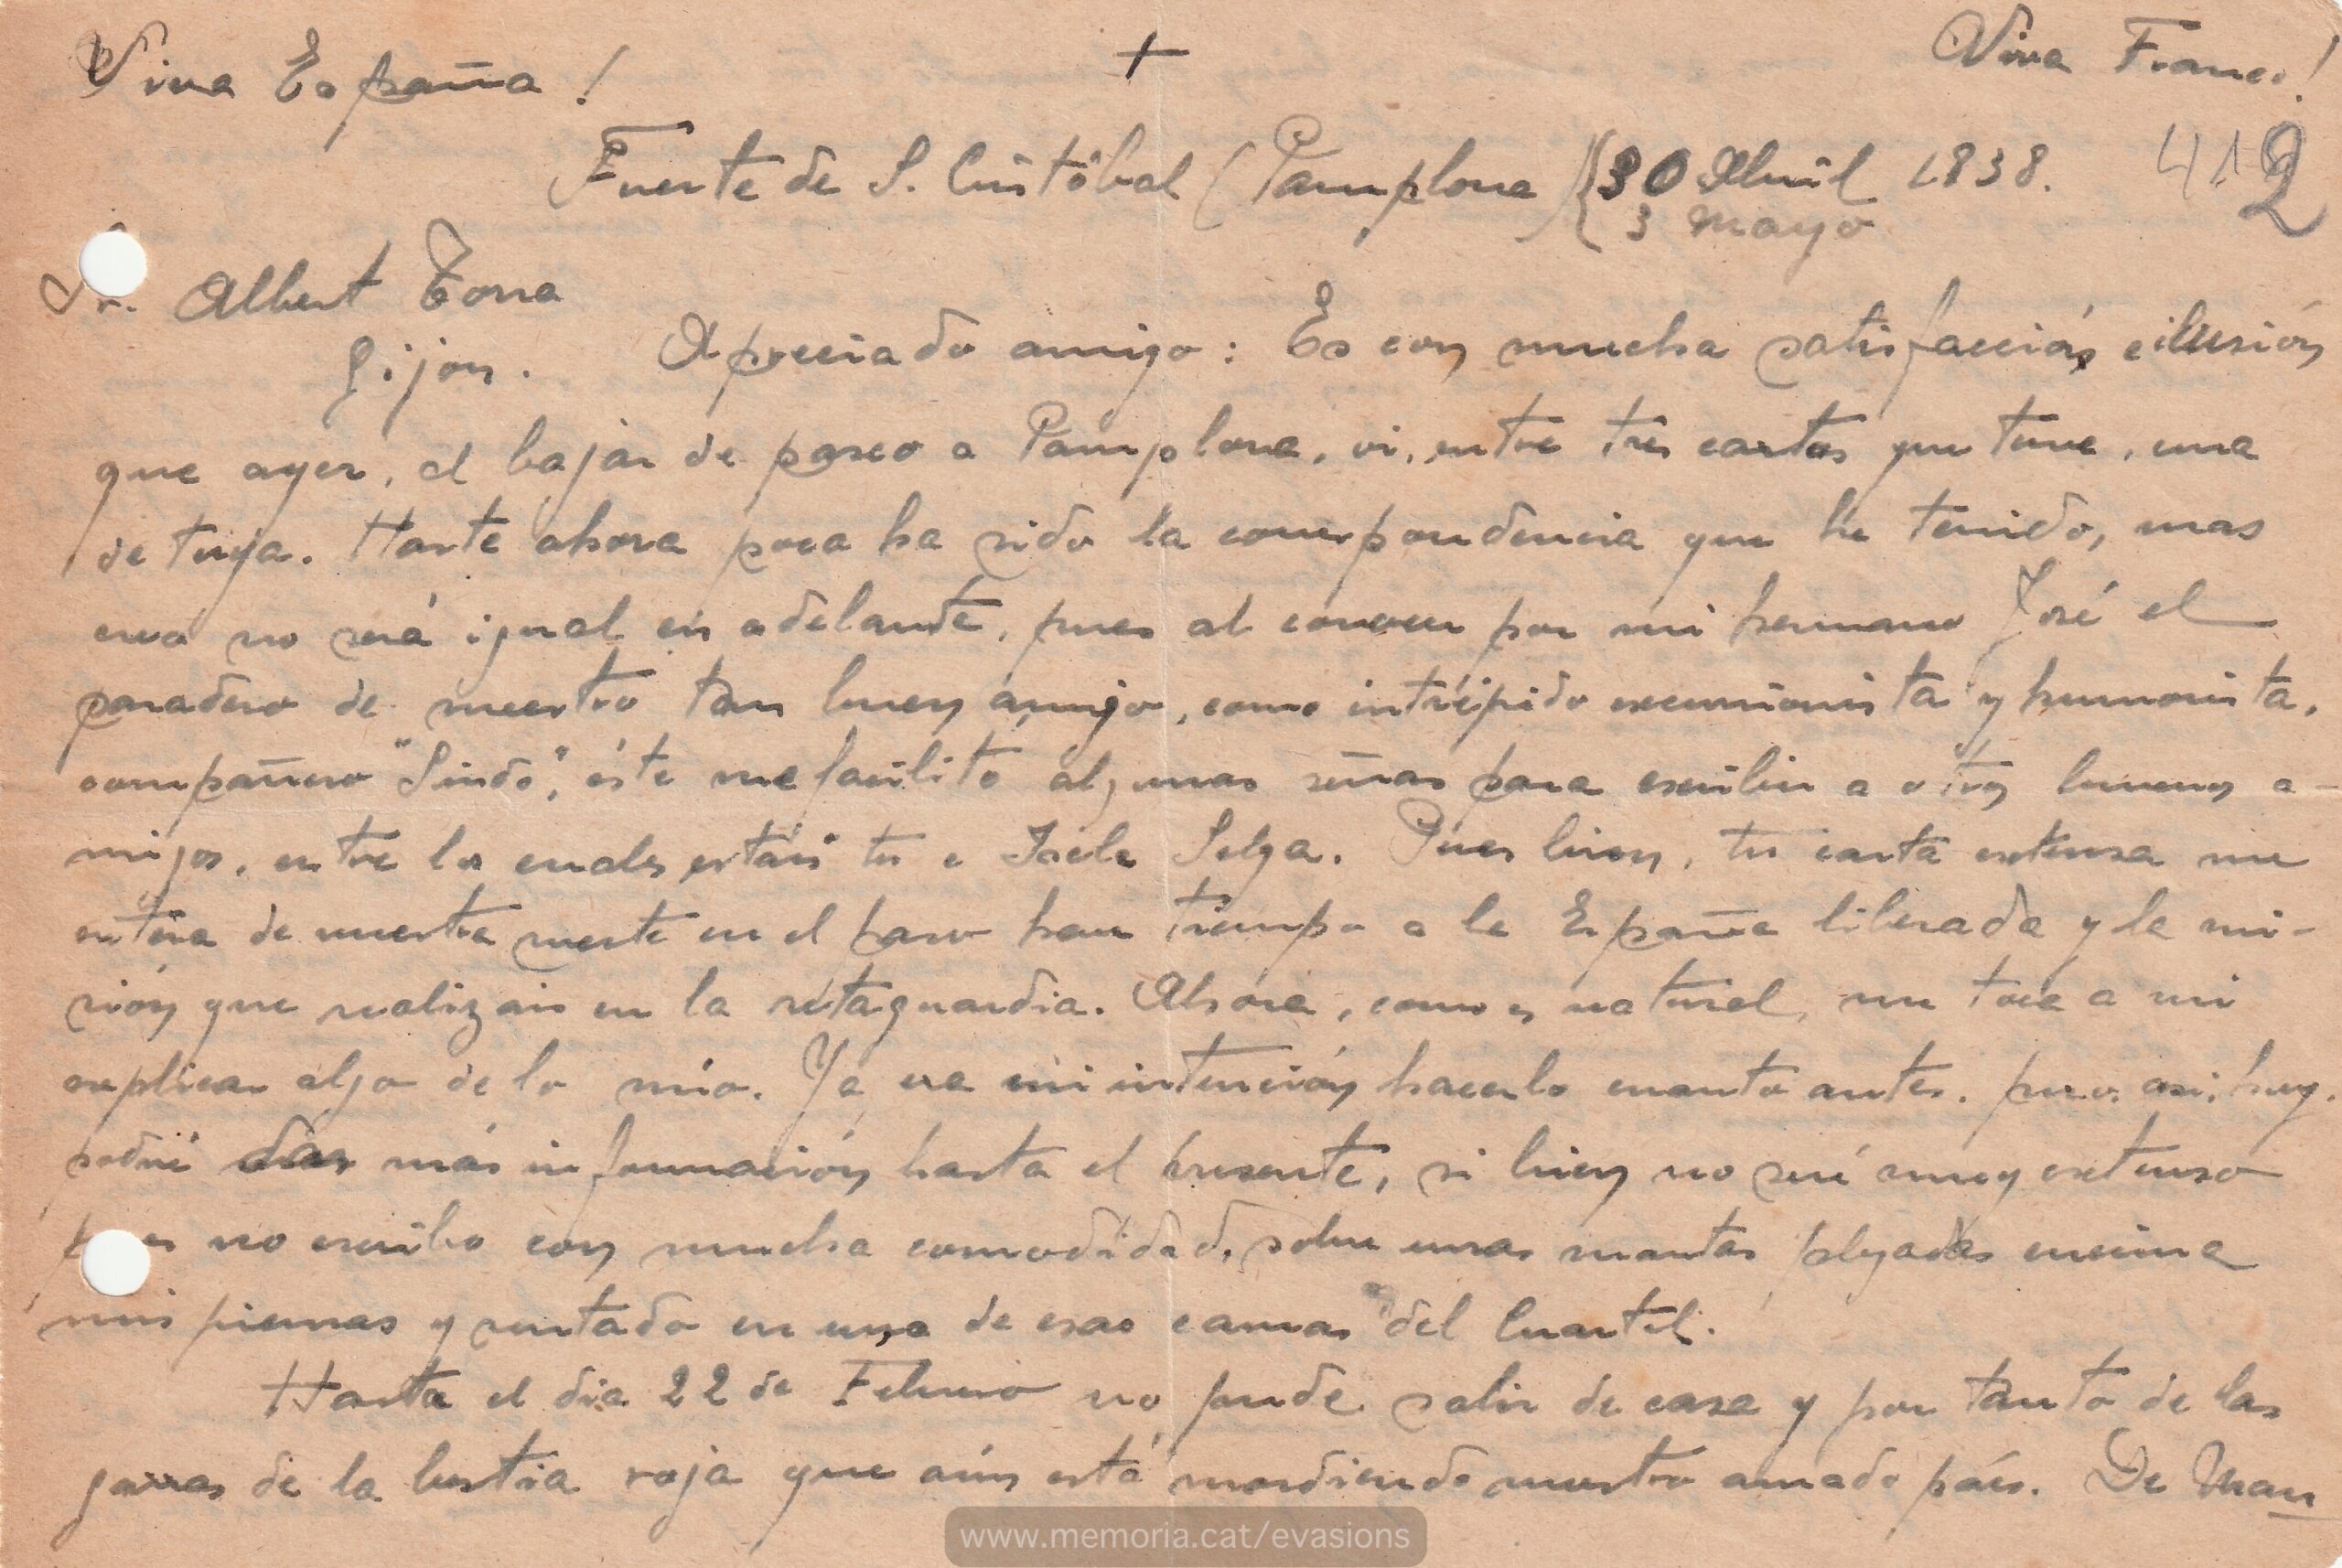 Viva España! + Viva Franco!
Fuerte de S. Cristóbal (Pamplona) 30 Abril 1938. 412
3 Mayo
Sr. Albert Torra
Gijon. Apreciado amigo: Es con mucha satisfacción e ilusión
que ayer, al bajar de paseo a Pamplona, vi, entre tres cartas que tuve, una
de tuya. Hasta ahora poca ha sido la correspondencia que he tenido, mas
creo no será igual en adelante, pues al conocer por mi hermano José el
paradero de nuestro tan buen amigo, como intrépido excursionista y humorista,
compañero "Sindo", éste me facilitó algunas señas para escribir a otros buenos a-
migos, entre los cuales estáis tu e Selga. Pues bien, tu carta extensa me
entera de vuestra suerte en el paso hace tiempo a la España liberada y la mi-
sión que realizais en la retaguardia. Ahora, como es natural, me toca a mi
explicar algo de lo mio. Ya era mi intención hacerlo cuanto antes, pero asi, hoy,
podré dar más información hasta el presente, si bien no seré muy extenso
pues no escribo con mucha comodidad, sobre unas mantas plegadas encima
mis piernas y sentado en una de esas camas del Cuartel.
Hasta el dia 22 de Febrero no pude salir de casa y por tanto de las
garras de la bestia roja que aún está mordiendo nuestro amado país. De Man
www.memoria.cat/evasions